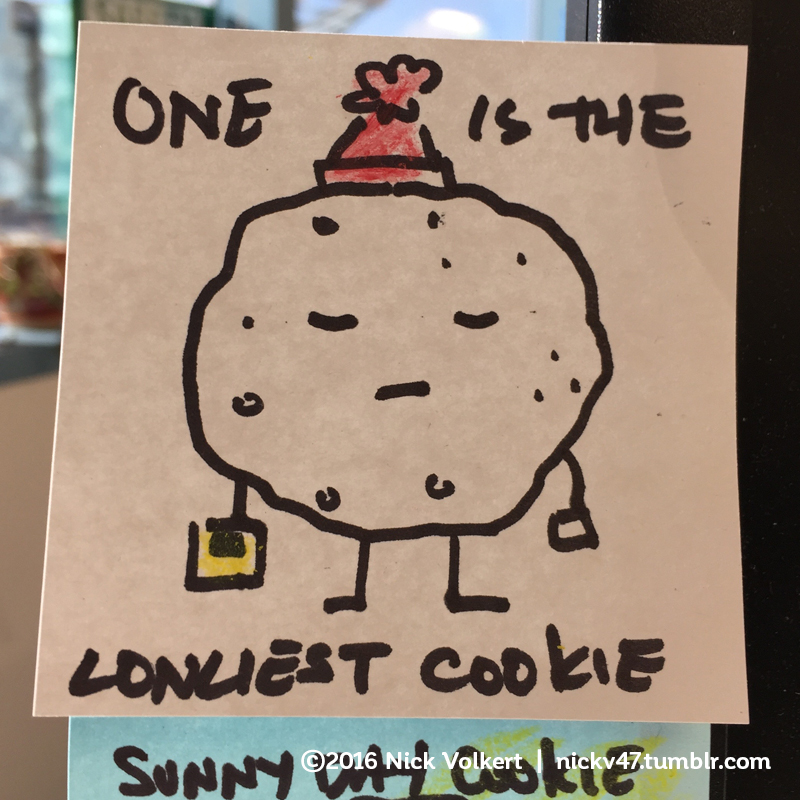 ONE IS THE
LONLIEST COOKIE
SUNNY DAY COOKIE
©2016 Nick Volkert | nickv47.tumblr.com